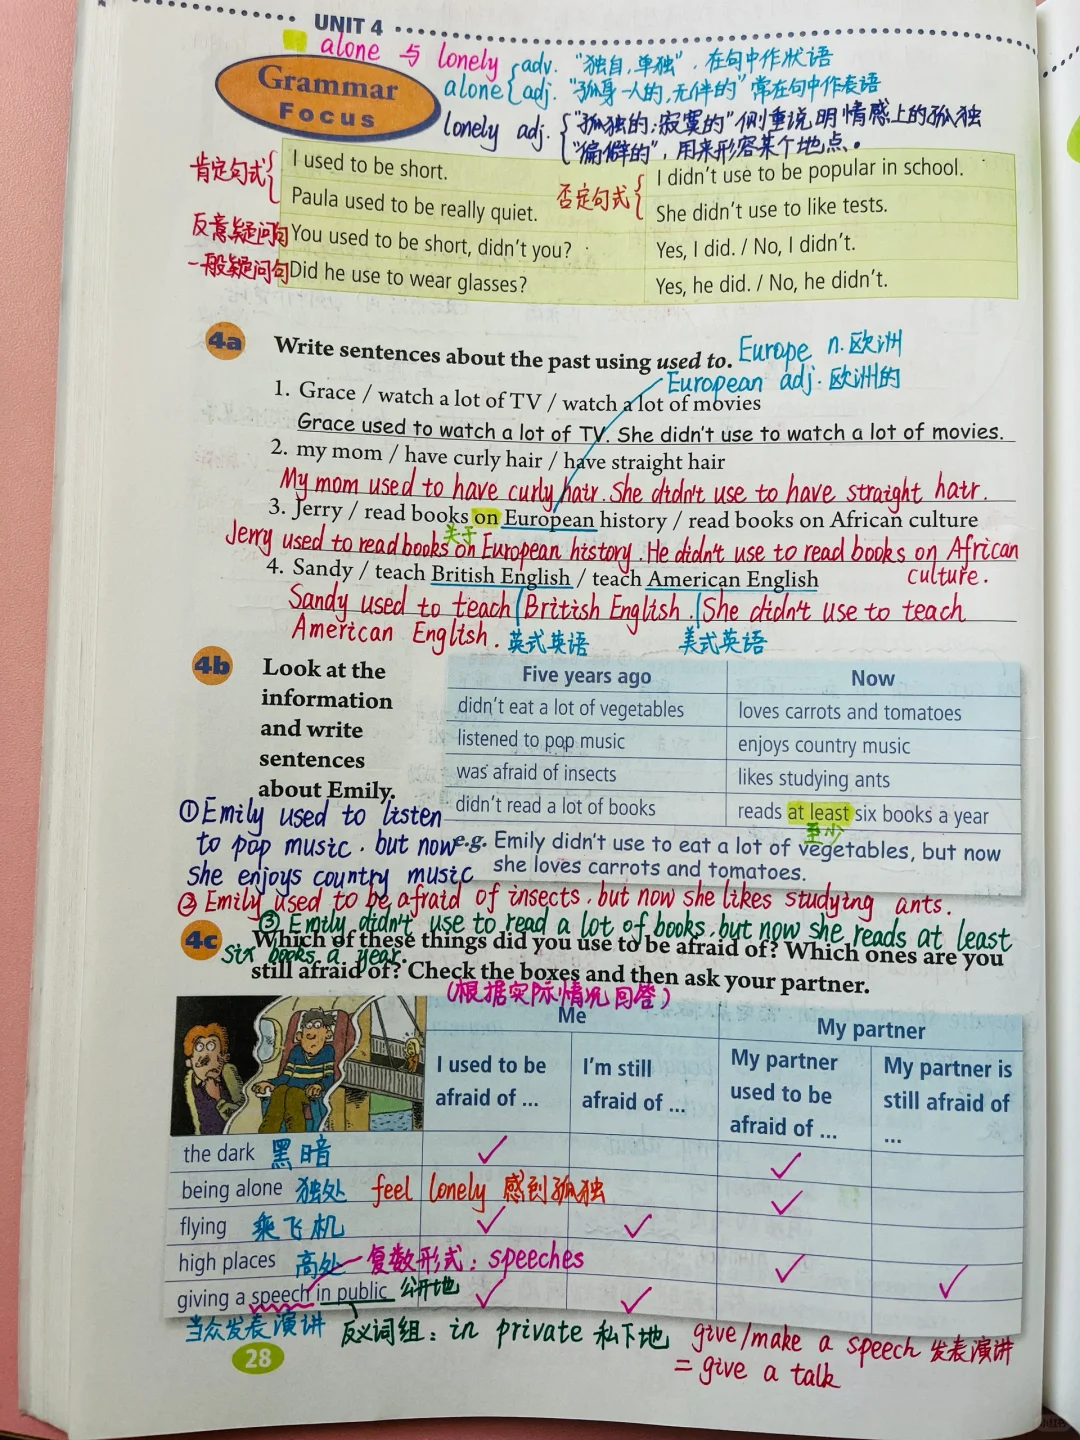 UNIT 4
alone 与 lonely
Grammar
Focus
alone { adv. “独自,单独”. 在句中作状语
adj. “孤身一人的,无伴的” 常在句中作表语
lonely adj. { “孤独的;寂寞的” 侧重说明情感上的孤独
“偏僻的”, 用来形容某个地点.
肯定句式 { I used to be short.
Paula used to be really quiet.
否定句式 { I didn't use to be popular in school.
She didn't use to like tests.
反意疑问句 You used to be short, didn't you?
Yes, I did. / No, I didn't.
一般疑问句 Did he use to wear glasses?
Yes, he did. / No, he didn't.
4a Write sentences about the past using used to.
Europe n. 欧洲
European adj. 欧洲的
1. Grace / watch a lot of TV / watch a lot of movies
Grace used to watch a lot of TV. She didn't use to watch a lot of movies.
2. my mom / have curly hair / have straight hair
My mom used to have curly hair. She didn't use to have straight hair.
3. Jerry / read books on European history / read books on African culture
关于
Jerry used to read books on European history. He didn't use to read books on African
culture.
4. Sandy / teach British English / teach American English
Sandy used to teach British English. She didn't use to teach
American English.
英式英语 美式英语
4b Look at the
information
and write
sentences
about Emily.
Five years ago Now
didn't eat a lot of vegetables loves carrots and tomatoes
listened to pop music enjoys country music
was afraid of insects likes studying ants
didn't read a lot of books reads at least six books a year
至少
e.g. Emily didn't use to eat a lot of vegetables, but now
she loves carrots and tomatoes.
① Emily used to listen
to pop music. but now
she enjoys country music
② Emily used to be afraid of insects, but now she likes studying ants.
③ Emily didn't use to read a lot of books, but now she reads at least
six books a year.
4c Which of these things did you use to be afraid of? Which ones are you
still afraid of? Check the boxes and then ask your partner.
(根据实际情况回答)
Me My partner
I used to be
afraid of ...
I'm still
afraid of ...
My partner
used to be
afraid of ...
My partner is
still afraid of
...
the dark 黑暗 ✓ ✓
being alone 独处 feel lonely 感到孤独 ✓
flying 乘飞机 ✓ ✓
high places 高处 复数形式: speeches ✓ ✓
giving a speech in public 公开地 ✓ ✓
当众发表演讲 反义词组: in private 私下地
give/make a speech 发表演讲
= give a talk
28